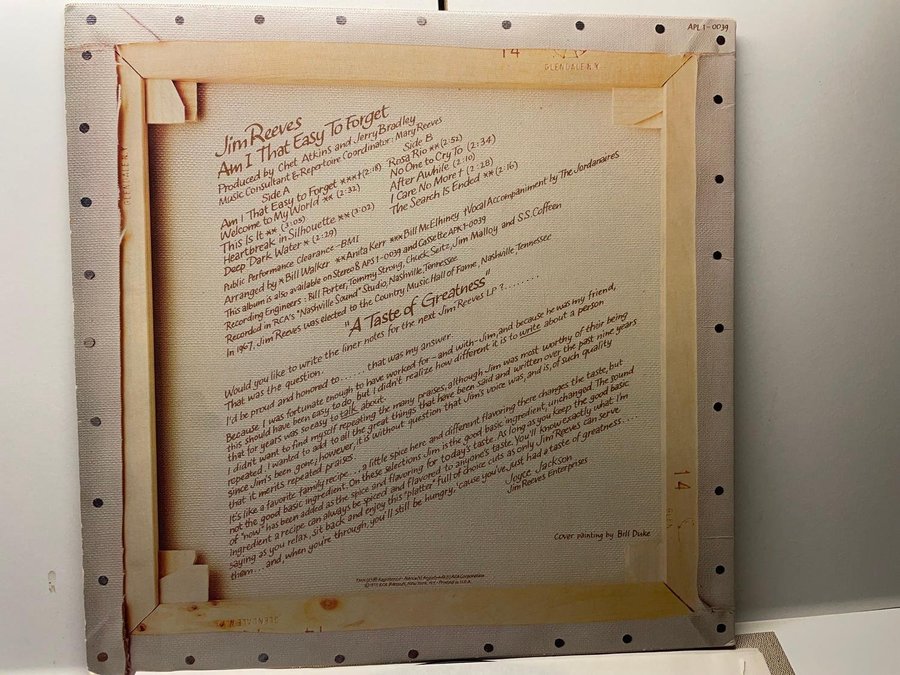 APL1-0039
14
GLENDALE N.Y.
Jim Reeves
Am I That Easy To Forget
Produced by Chet Atkins and Jerry Bradley
Music Consultant & Repertoire Coordinator: Mary Reeves
Side A
Am I That Easy to Forget ***†(2:18)
Welcome to My World ** (2:32)
This Is It ** (3:05)
Heartbreak in Silhouette ** (3:02)
Deep Dark Water * (2:29)
Side B
Rosa Rio ** (2:52)
No One to Cry To (2:34)
After Awhile (2:10)
I Care No More † (2:28)
The Search Is Ended ** (2:16)
Public Performance Clearance—BMI
Arranged by * Bill Walker **Anita Kerr ***Bill McElhiney †Vocal Accompaniment by The Jordanaires
This album is also available on Stereo 8 APS1-0039 and Cassette APK1-0039
Recording Engineers: Bill Porter, Tommy Strong, Chuck Seitz, Jim Malloy and S.S. Coffeen
Recorded in RCA's "Nashville Sound" Studio, Nashville, Tennessee
In 1967, Jim Reeves was elected to the Country Music Hall of Fame, Nashville, Tennessee
"A Taste of Greatness"
Would you like to write the liner notes for the next Jim Reeves LP?........
That was the question.
I'd be proud and honored to...... that was my answer.
Because I was fortunate enough to have worked for—and with—Jim, and because he was my friend,
this should have been easy to do, but I didn't realize how different it is to write about a person
that for years was so easy to talk about.
I didn't want to find myself repeating the many praises, although Jim was most worthy of their being
repeated. I wanted to add to all the great things that have been said and written over the past nine years
since Jim's been gone; however, it is without question that Jim's voice was, and is, of such quality
that it merits repeated praises.
It's like a favorite family recipe... a little spice here and different flavoring there changes the taste, but
not the good basic ingredient. On these selections Jim is the good basic ingredient, unchanged. The sound
of "now" has been added as the spice and flavoring for today's taste. As long as you keep the good basic
ingredient a recipe can always be spiced and flavored to anyone's taste. You'll know exactly what I'm
saying as you relax, sit back and enjoy this "platter" full of choice cuts as only Jim Reeves can serve
them... and, when you're through, you'll still be hungry, 'cause you've just had a taste of greatness....
Joyce Jackson
Jim Reeves Enterprises
Cover painting by Bill Duke
14